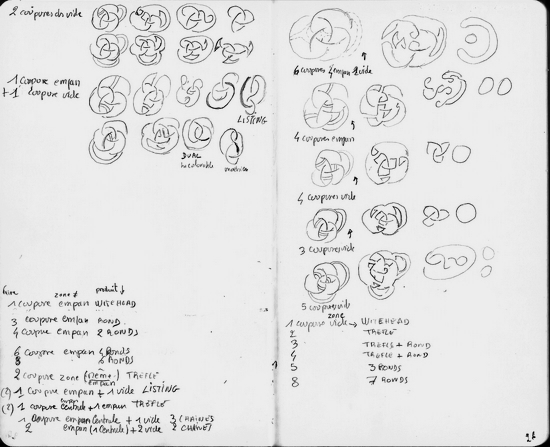 2 coupures du vide
1 coupure empan
+ 1 coupure vide
LISTING
DUAL
faire zone ≠ produit ↓
1 coupure empan WITEHEAD
3 coupure empan ROND
4 coupure empan 2 RONDS
6 coupure empan 4 RONDS
8 RONDS
2 coupure zone (même) TREFLE
empan
(2) 1 coupure empan + 1 vide LISTING
(2) 1 coupure centrale + 1 empan TREFLE
1 coupure empan centrale + 1 vide 3 CHAINES
2 empan (1 centrale) + 2 vide 2 CHAINES
6 coupures 4 empan 2 vide
4 coupures empan
4 coupures vide
3 coupures vide
5 coupures vide
zone
1 coupure vide → WITEHEAD
2 TREFLE
3 TREFLE + ROND
4 TREFLE + ROND
5 3 RONDS
8 7 RONDS
21